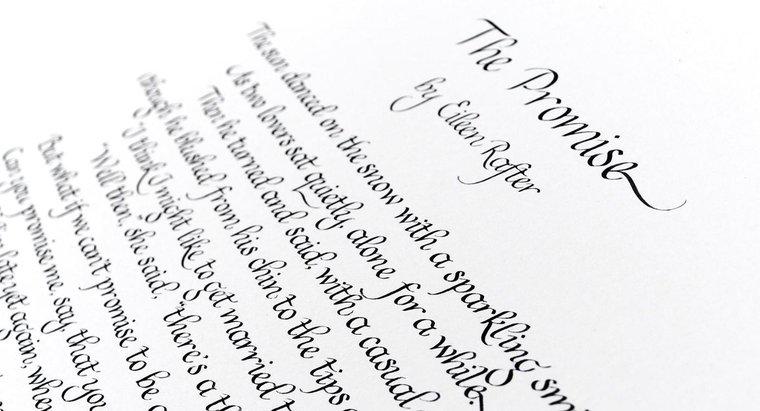 The Promise
by Eileen Rafter
The sun danced on the snow with a sparkling smi
As two lovers sat quietly, alone for a while.
Then he turned and said, with a casual
though he blushed from his chin to the tips
"I think I might like to get married t
"Well then, she said, "there's a th
But what if we can't promise to be
Can you promise me, say, that you
late yet again, whe